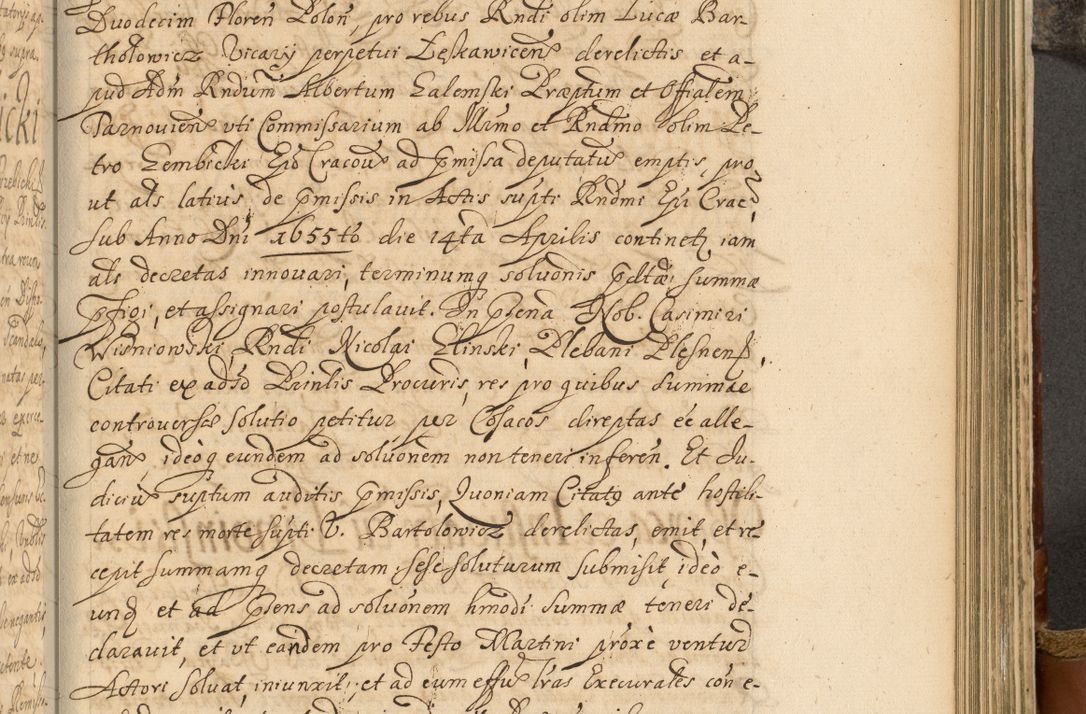 Duodecim Floren̄ Polon̄, pro rebus Rndi olim Lucæ Bar-
tholowicz Vicarÿ perpetui Lękawicen̄ derelictis et a-
pud Adm Rndum Albertum Zalemski Præptum et Offialem
Tarnovien̄ vti Commissarium ab Illrmo et Rndmo olim Pe-
tro Gembicki Epō Cracov̄ ad p̄missa deputatū emptis, pro
ut als latius de p̄missis in Actis supti Rndmi Epi Crac̄,
sub Anno Dnī 1655to die 14ta Aprilis continetʒ iam
als decretas innovari, terminumq̄ solu͞onis p̄dctæ summæ
p̄figi, et assignari postulavit. In p̄sena Nob. Casimiri
Wisniowski, Rndi Nicolai Glinski Plebani Plesnen̄,
Citati ex adsō Prinlis Procuris, res pro quibus summæ
controversæ solutio petitur per Cosacos direptas ēē alle-
gan̄, ideoq̄ eundem ad solu͞onem non teneri inferen̄. Et Iu-
diciū suptum auditis p̄missis, Quoniam Citatq̄ ante hostili-
tatem res morte supti V. Bartolowicz derelictas, emit, et re-
cepit summamq̄ decretam sese soluturum submisit, ideo e-
und̄ et ad p̄sens ad solu͞onem hmodi summæ teneri de-
claravit, et vt eandem pro Festo Martini proxe ventur̄
Actori solvat, iniunxit, et ad eum effū lras Execurales con e-